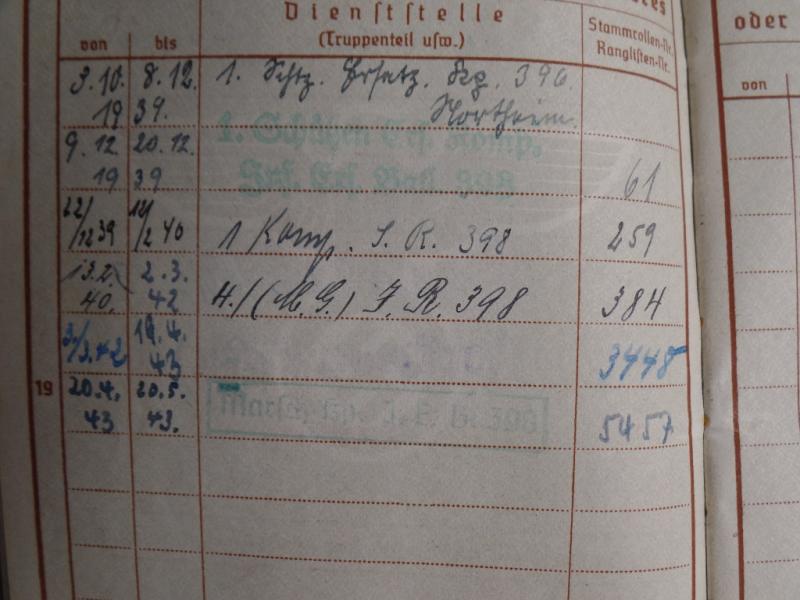 Dienststelle
(Truppenteil usw.)
von bis
Stammrollen-Nr.
Ranglisten-Nr.
oder
von
3.10. 8.12. 1. Schtz. Ersatz. Kp. 396.
19 39. Northeim.
1. Schützen Ers. Komp.
9.12. 20.12.
19 39
Inf. Ers. Batl. 398
61
22/12 39 12/2 40 1 Komp. I. R. 398 259
13.2. 2.3.
40. 42 4./(M.G.) I. R. 398 384
3/3.42 19.4.
43 3448
19 20.4. 20.5.
43 43. 5457